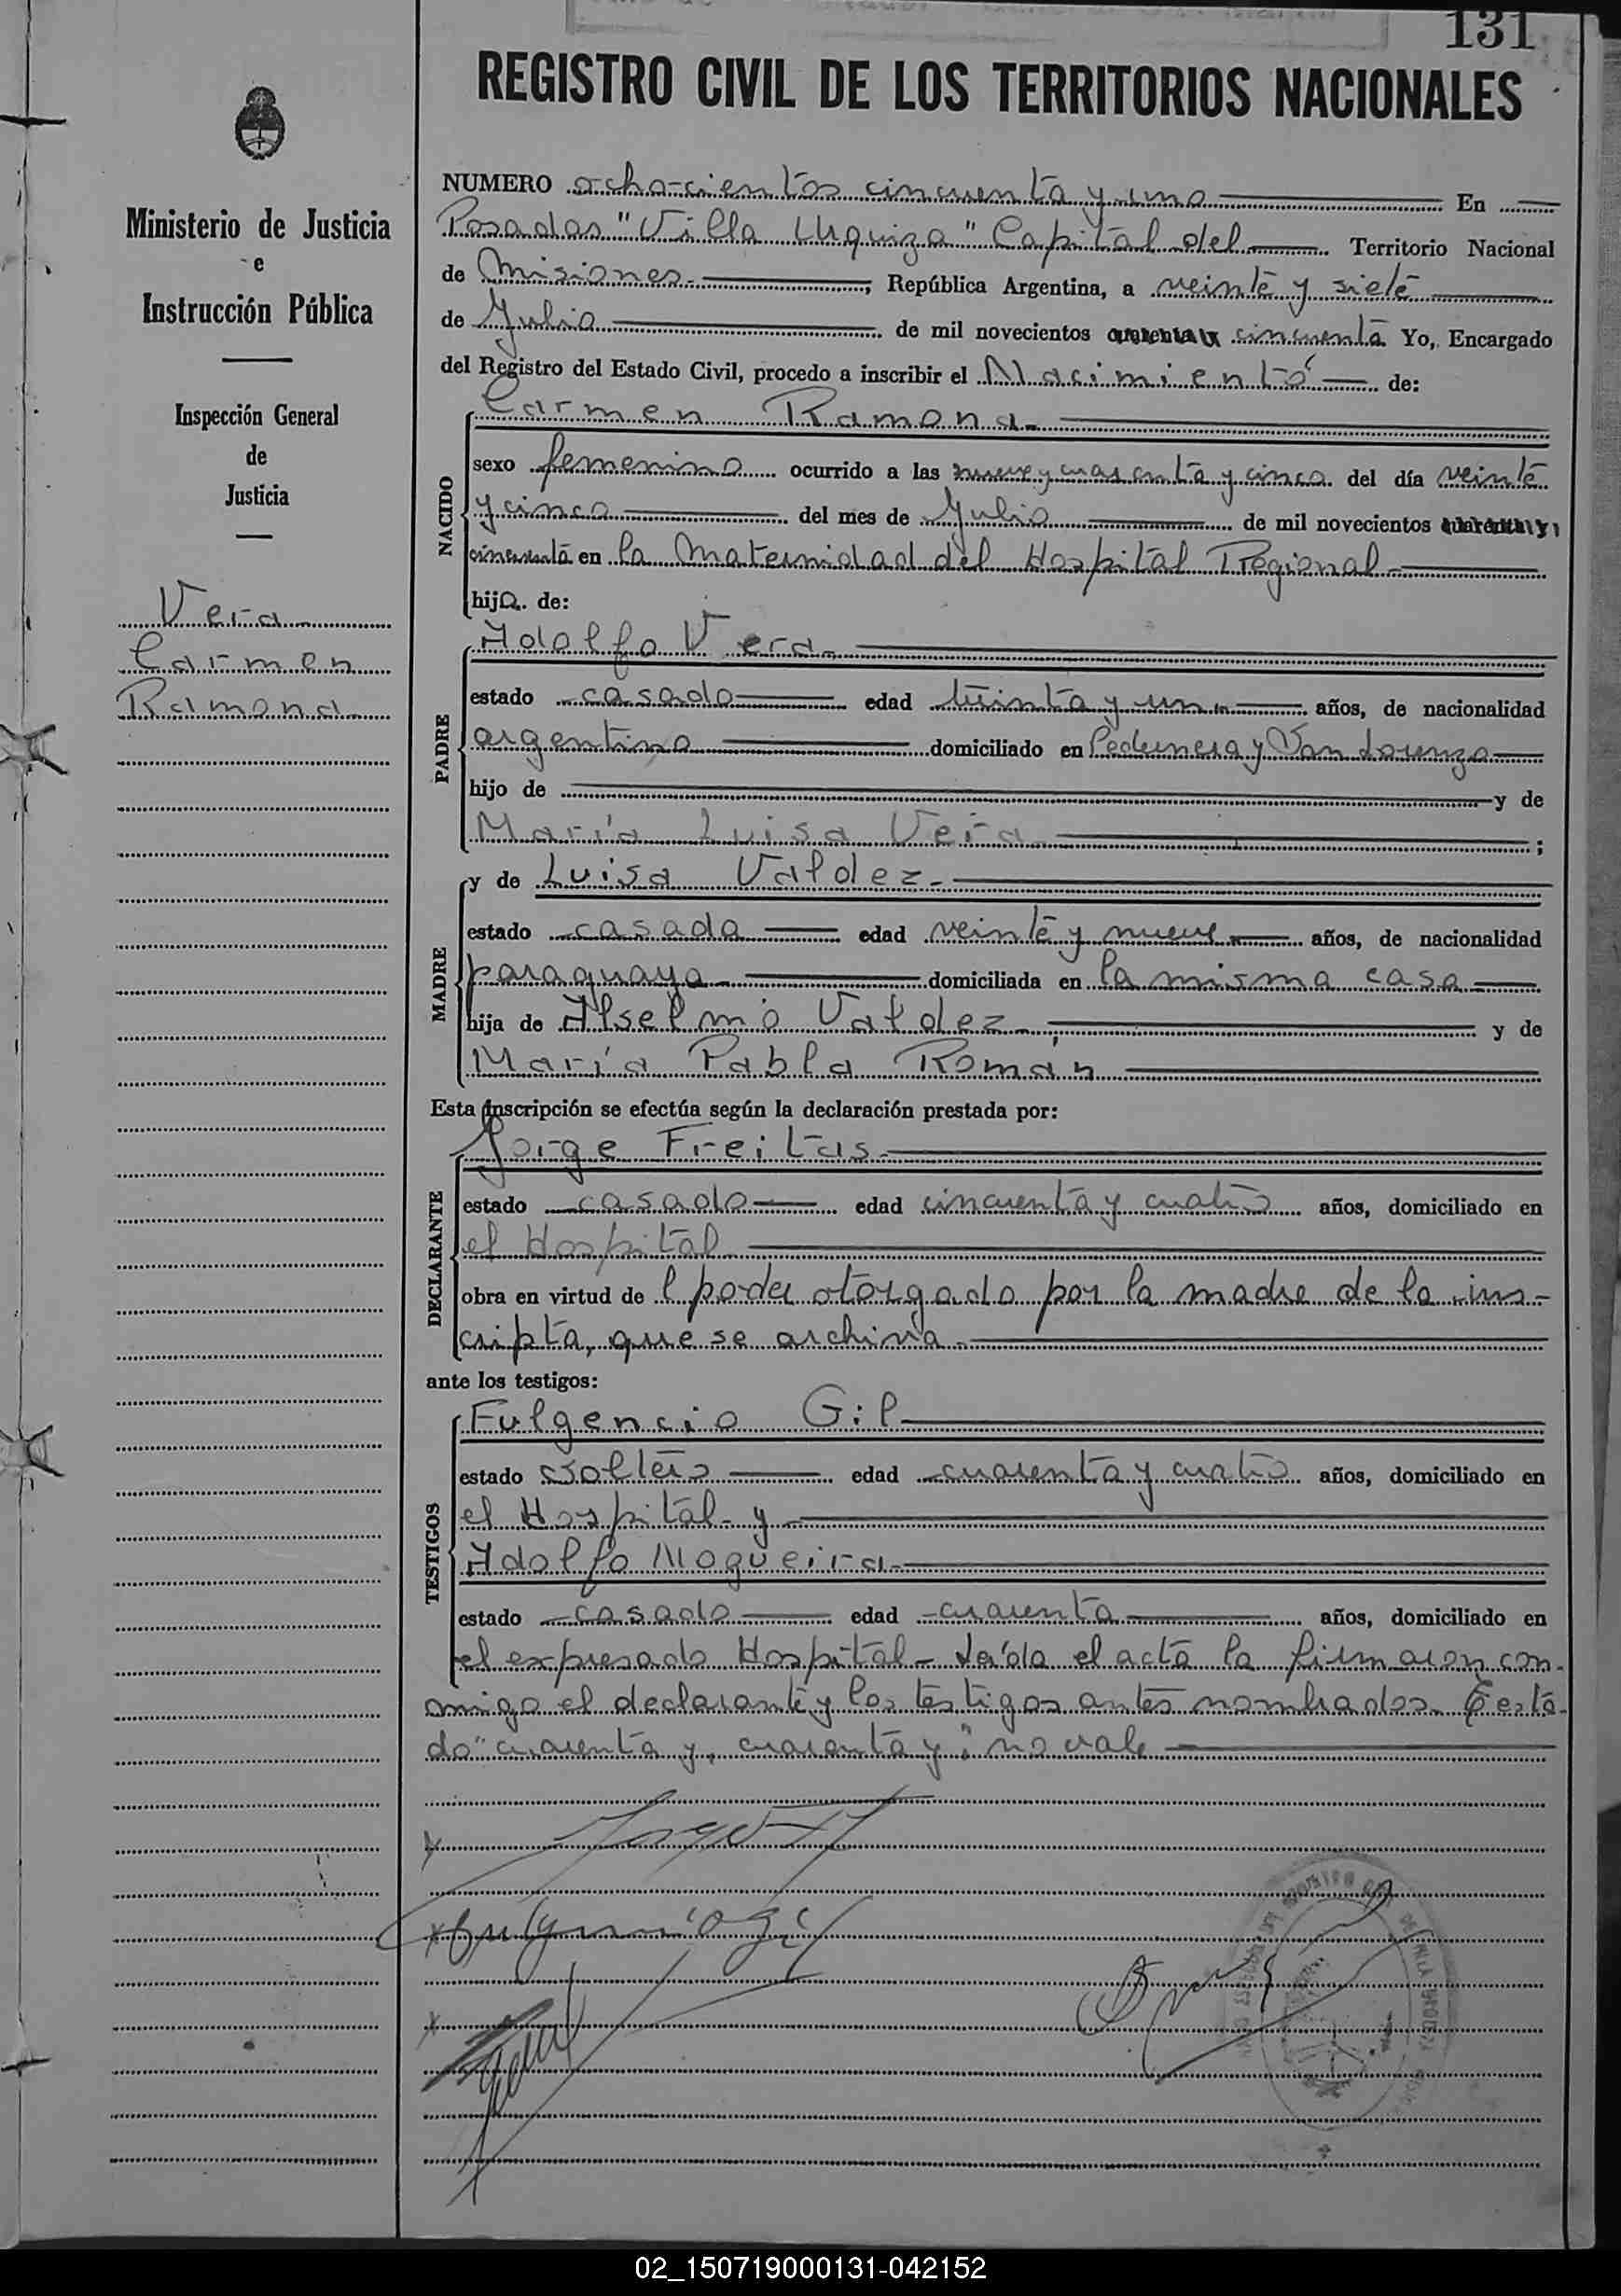 131
REGISTRO CIVIL DE LOS TERRITORIOS NACIONALES
Ministerio de Justicia
e
Instrucción Pública
Inspección General
de
Justicia
Vera
Carmen
Ramona
NUMERO ochocientos cincuenta y uno En
Posadas "Villa Urquiza" Capital del Territorio Nacional
de Misiones.- ; República Argentina, a veinte y siete
de Julio de mil novecientos cuarenta y cincuenta Yo, Encargado
del Registro del Estado Civil, procedo a inscribir el Nacimiento de:
NACIDO
Carmen Ramona.-
sexo femenino ocurrido a las nueve y cuarenta y cinco del día veinte
y cinco del mes de Julio de mil novecientos cuarenta y
cincuenta en la Maternidad del Hospital Regional.-
hija de:
PADRE
Adolfo Vera.-
estado casado edad treinta y un.- años, de nacionalidad
argentino domiciliado en Pedernera y San Lorenzo
hijo de y de
María Luisa Vera ;
MADRE
y de Luisa Valdez.-
estado casada edad veinte y nueve.- años, de nacionalidad
paraguaya.- domiciliada en la misma casa
hija de Alselmo Valdez y de
María Pabla Román
Esta inscripción se efectúa según la declaración prestada por:
DECLARANTE
Jorge Freitas.-
estado casado edad cincuenta y cuatro años, domiciliado en
el Hospital
obra en virtud de l poder otorgado por la madre de la ins-
cripta, que se archiva.-
ante los testigos:
TESTIGOS
Fulgencio Gil
estado soltero edad cuarenta y cuatro años, domiciliado en
el Hospital- y
Adolfo Nogueira.-
estado casado edad cuarenta años, domiciliado en
el expresado Hospital- Leída el acta la firmaron con-
migo el declarante y los testigos antes nombrados. Testa-
do "cuarenta y, cuarenta y" no vale
02_150719000131-042152